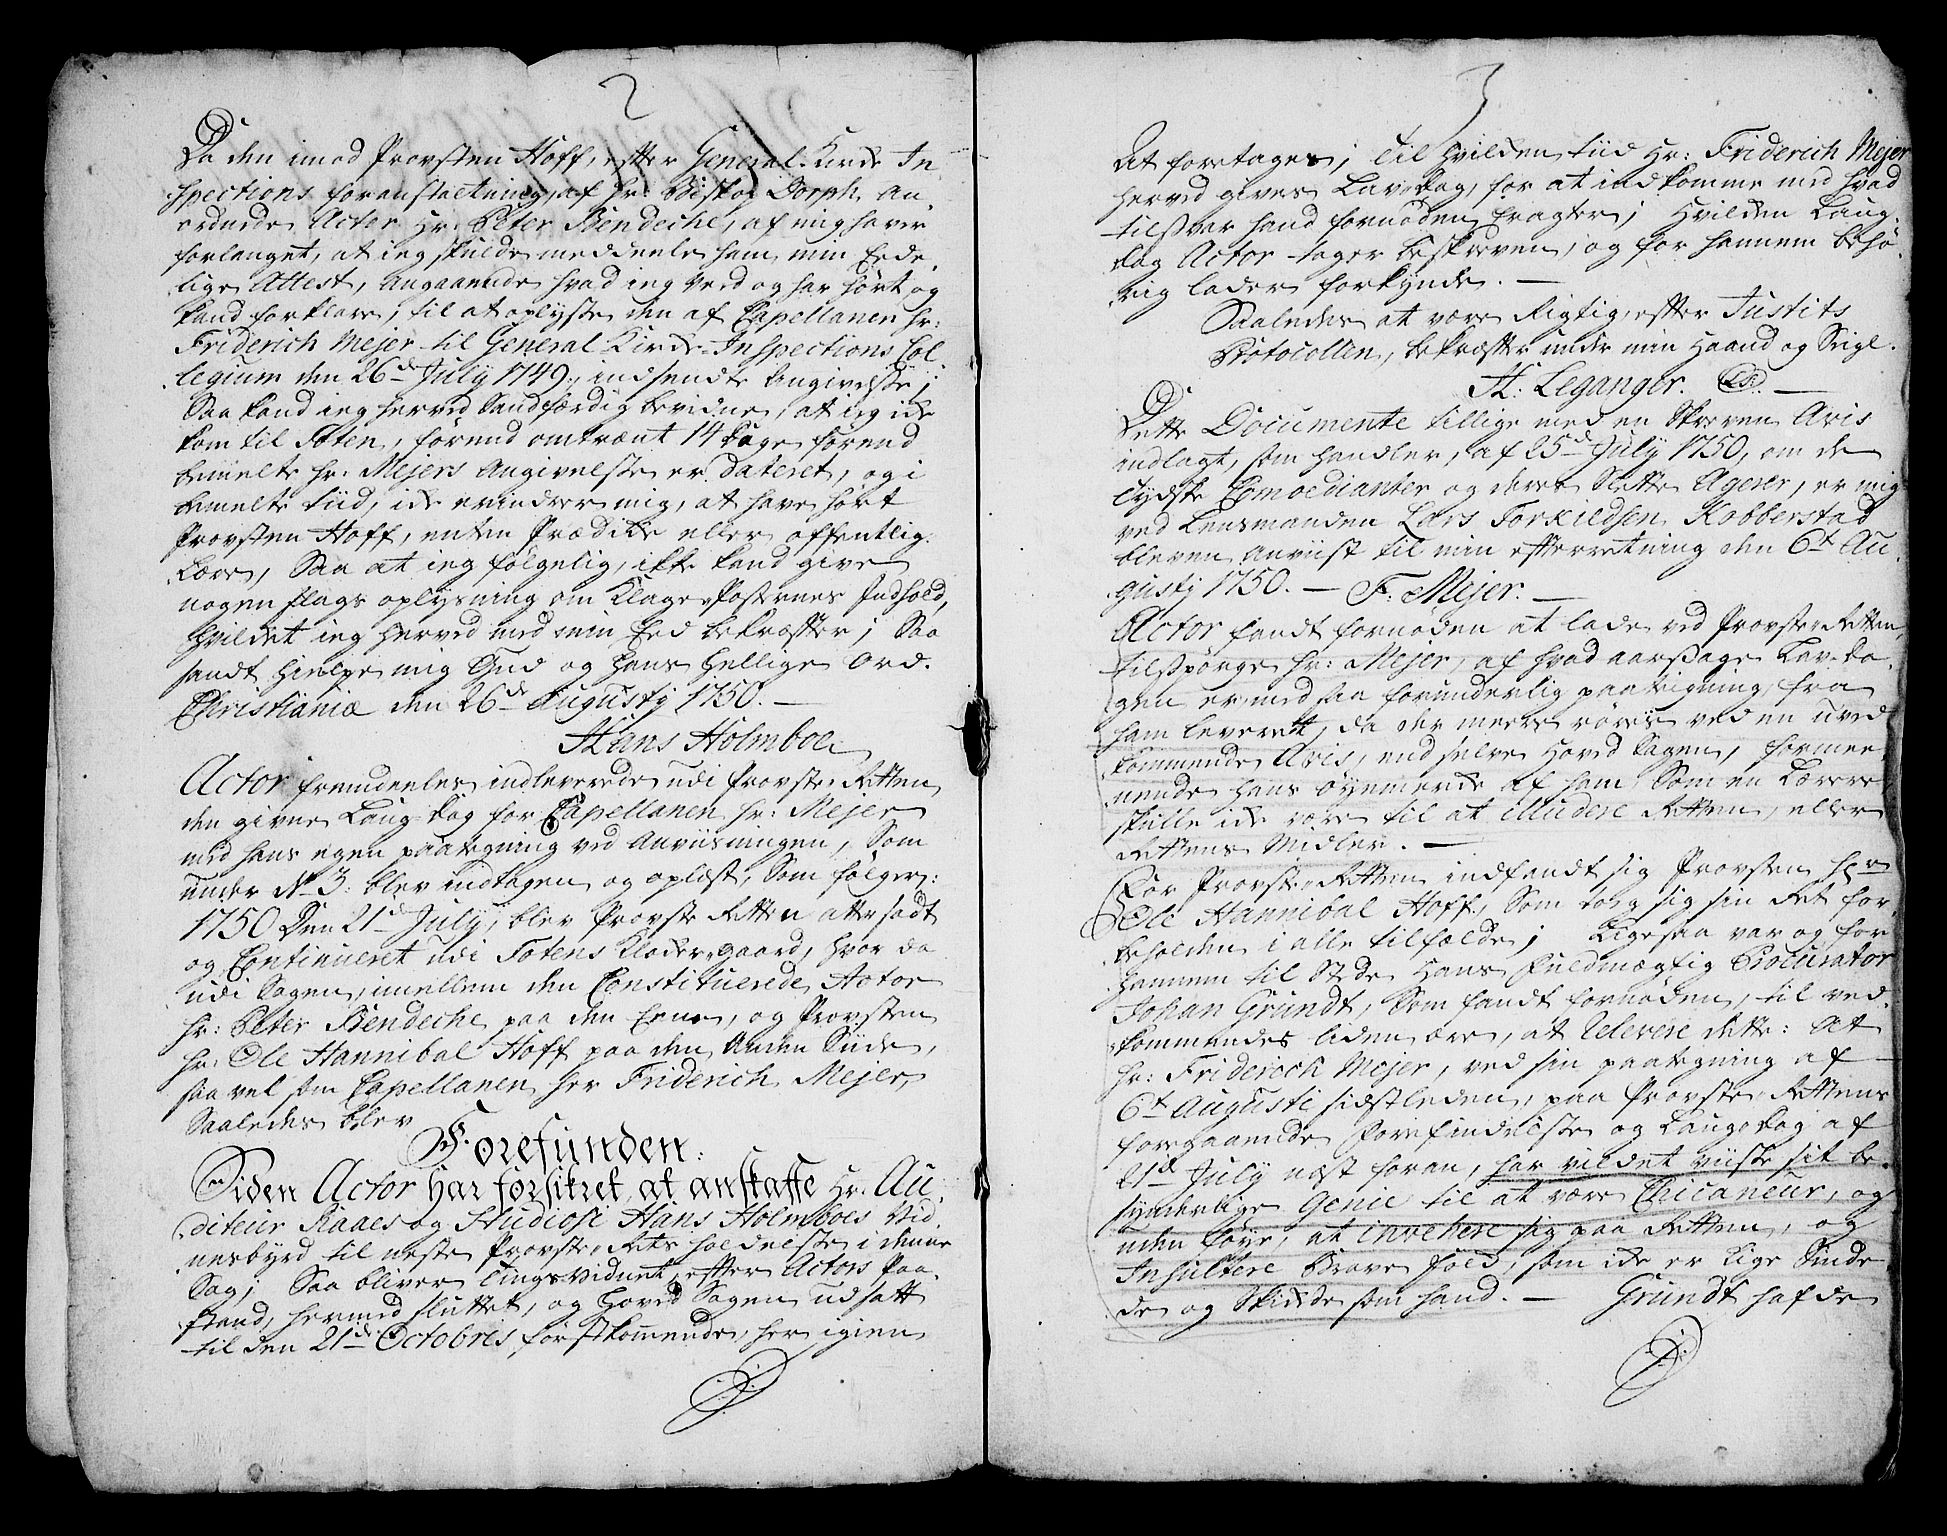 2
Da den imod Provsten Hoff, efter General-Kirke In-
spections foranstaltning, af Hr: Biskop Dorph, an-
ordnede Actor Hr: Peter Bendeche, af mig haver
forlanget, at jeg skulde meddeele ham min Eed-
lige Attest, angaaende hvad jeg veed og har hørt og
kand forklare, til at oplyse den af Capellanen Hr:
Friderich Mejer til General Kirke-Inspections Col-
legium den 26de July 1749, indsendte Angivelse;
Saa kand jeg herved Sandfærdig bevidne, at jeg icke
kom til Toten, førend omtrænt 14 Dage førend
bemelte Hr: Mejers Angivelse er dateret, og i
bemelte tiid, icke erindrer mig, at have hørt
Provsten Hoff, enten Prædike eller offentlig
Lære, Saa at jeg følgelig, ikke kand give
nogen slags oplysning om Klage-Posternes Indhold,
Hvilket jeg herved med min Eed bekræfter; Saa
sandt hielpe mig Gud og Hans hellige Ord.
Christiania den 26de Augusty 1750. —
Hans Holmboe
Actor fremdeeles indleverede udi Provste-Retten
den givne Laug-dag for Capellanen Hr: Mejer
med hans egen paategning ved Anviisningen, Som
under No 3: blev indtagen og oplæst, Som følger:
1750 Den 21de July, blev Provste Retten atter sadt
og Continueret udi Totens Klocker-gaard, hvor da
udi Sagen, imellem den Constituerede Actor
Hr: Peter Bendeche paa den Eene, og Provsten
Hr: Ole Hannibal Hoff paa den Anden Siide,
saa vel som Capellanen Her Friderich Mejer,
Saaledes blev
Forefunden:
Siden Actor Har forsikret at anskaffe Hr: Au-
diteur Raaes og Studiosi Hans Holmboes Vid-
nesbyrd til neste Provste-Rets holdelse i denne
Sag; Saa bliver Tings Vidnet, efter Actors Paa-
stand, hermed sluttet, og Hoved Sagen udsatt
til den 21de Octobris førstkommende, her igien
3
det foretages; til hvilken tiid Hr: Friderich Mejer
herved gives Lav-dag, for at indkomme med hvad
tilsvar hand fornøden Eragter; Hvilken Laug-
dag Actor tager beskreven, og for hannem behø-
rig lader forkynde. —
Saaledes at være Rigtig, efter Justits
Protocollen, bekræfter under min Haand og Seigl.
H: Leganger. LS. —
Dette Documente tillige med en Skreven Avis
indlagt, som handler, af 25de July 1750, om de
tydske Comoedianter og deres Slette Agerer, er mig
ved Lensmanden Lars Torkildsen Kobberstad
bleven anviist til min efterretning den 6te Au-
gusty 1750. — F. Mejer. —
Actor fandt fornøden at lade ved Provste-Retten
tilspørge Hr: Mejer, af hvad aarsage Lav-da-
gen er med saa forunderlig paategning, fra
ham leveret, da der meere røres ved en uved-
kommende Avis, end selve Hoved Sagen, formee-
nende hans øyemerke af ham Som en Lærere
skulle icke være til at illudere Retten, eller
Rettens Midler. —
For Provste-Retten indfandt sig Provsten Her
Ole Hannibal Hoff, Som tog sig sin Ret for-
beholden i alle tilfælde; Ligesaa var og for
hannem til Stede Hans Fuldmægtig Procurator
Johan Grundt, Som fandt fornøden, til ved-
kommendes liden ære, at Relevere dette: At
Hr: Friderich Mejer, ved sin paategning af
6te Augusti sidstleden, paa Provste-Rettens
foregaaende Forefindelse og Laugdag af
21de July næst foran, har vildet viise sit be-
synderlige Genie til at være Chicaneur, og
uden føye, at invehere sig paa Retten, og
Insultere brave folk, som icke er lige Sinde-
de og Skickede som hand. — Grundt hafde